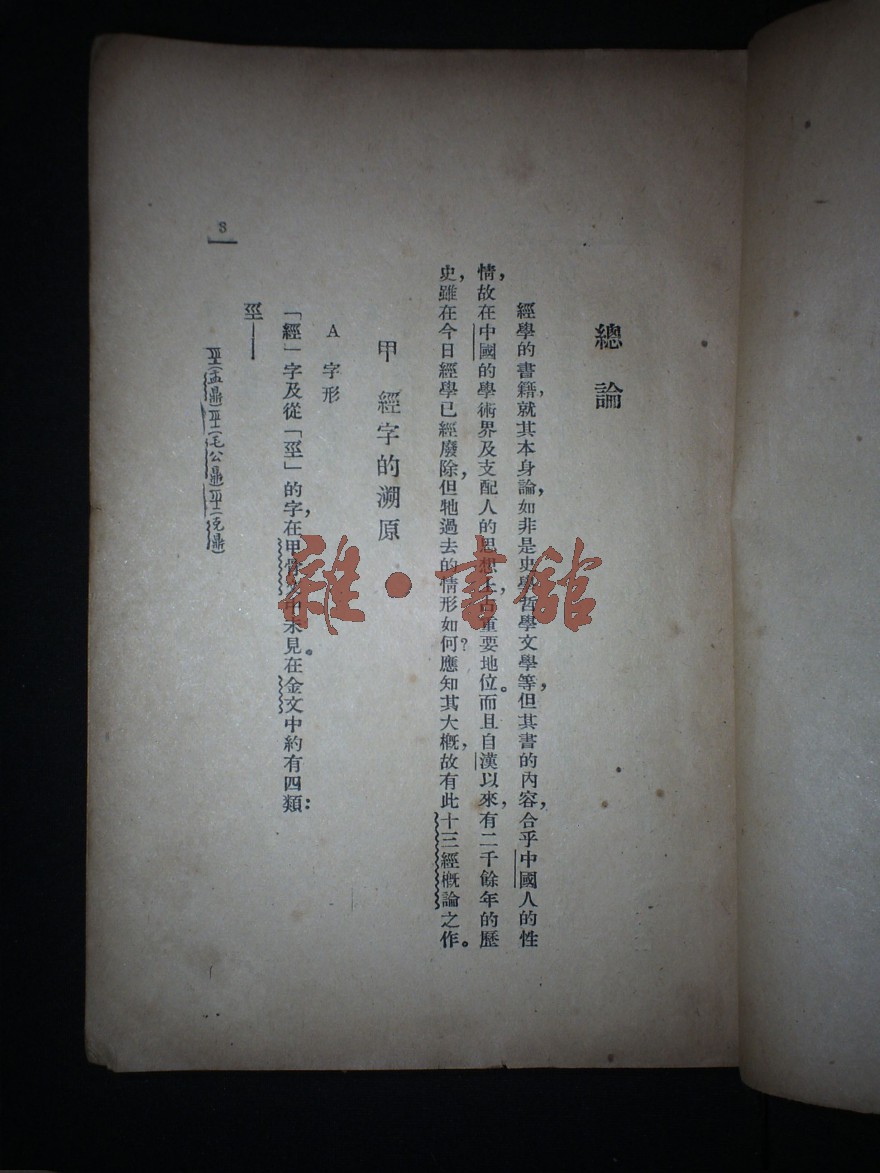 總論
經學的書籍，就其本身論，如非是史學哲學文學等，但其書的內容，合乎中國人的性
情，故在中國的學術界及支配人的思想上，占重要地位。而且自漢以來，有二千餘年的歷
史，雖在今日經學已經廢除，但牠過去的情形如何？應知其大概，故有此十三經概論之作。
甲 經字的溯原
A 字形
「經」字及從「巠」的字，在甲骨文中未見。在金文中約有四類：
巠——
(盂鼎) (毛公鼎) (克鼎)
3
雜·書館